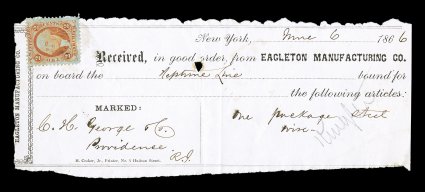 New York, June 6 1866
Received, in good order, from EAGLETON MANUFACTURING CO.
on board the Neptune Line bound for
the following articles:
EAGLETON MANUFACTURING CO.
MARKED:
C. H. George & Co.
Providense
R.I.
One package Steel
Wire
H. Croker, Jr., Printer, No. 9 Hudson Street.